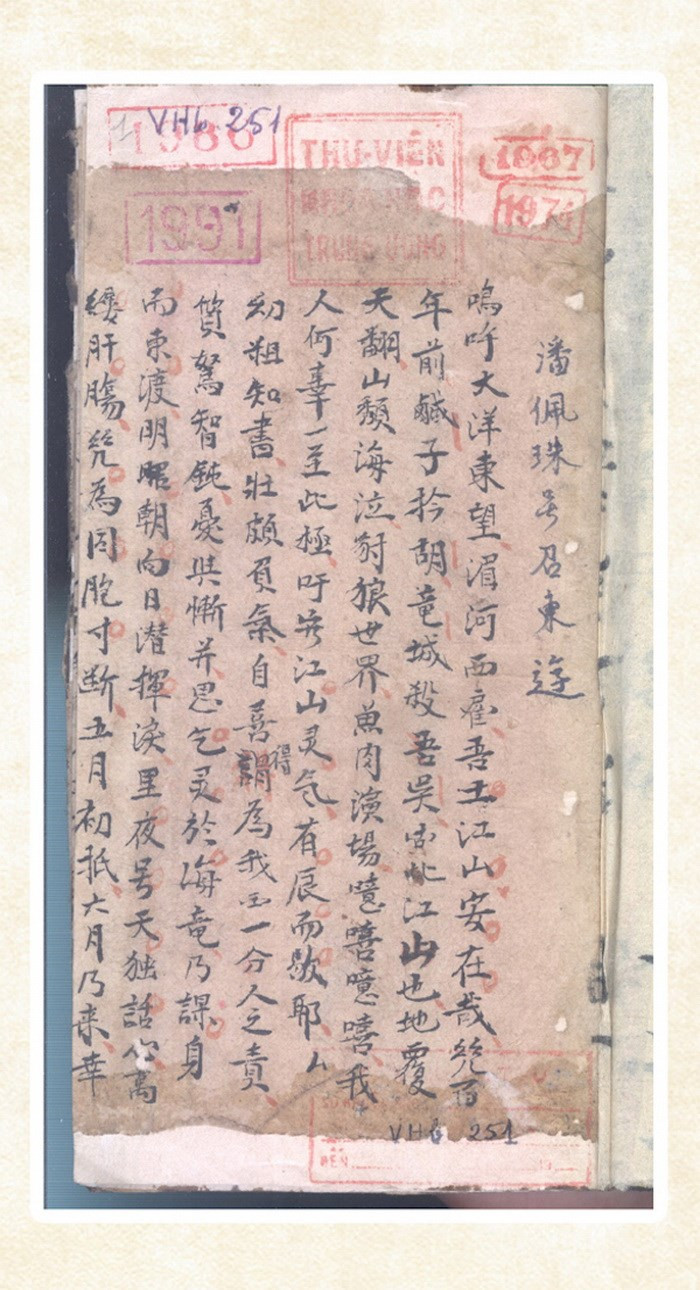 1986
VHb 251
THƯ-VIỆN
TRUNG ƯƠNG
1967
1974
1991
潘佩珠号召東遊
嗚呼大洋東望湄河西𮥼吾土江山安在哉幾百
年前鹹子於胡竜城殺吾吳 此江山也地覆
天翻山頹海泣豺狼世界魚肉演場噫嘻噫嘻我
人何辜一至此極吁嗟江山灵气有辰而歇耶 人
幼粗知書壯頗負氣自喜謂得為我国一分人之責
質駑智鈍憂與慚并思乞灵於海竜乃謀身
而東渡明 朝向日潜揮淚里夜号天独話心萬
纏肝腸幾為同胞寸断五月初抵六月乃来幸
VHb 251